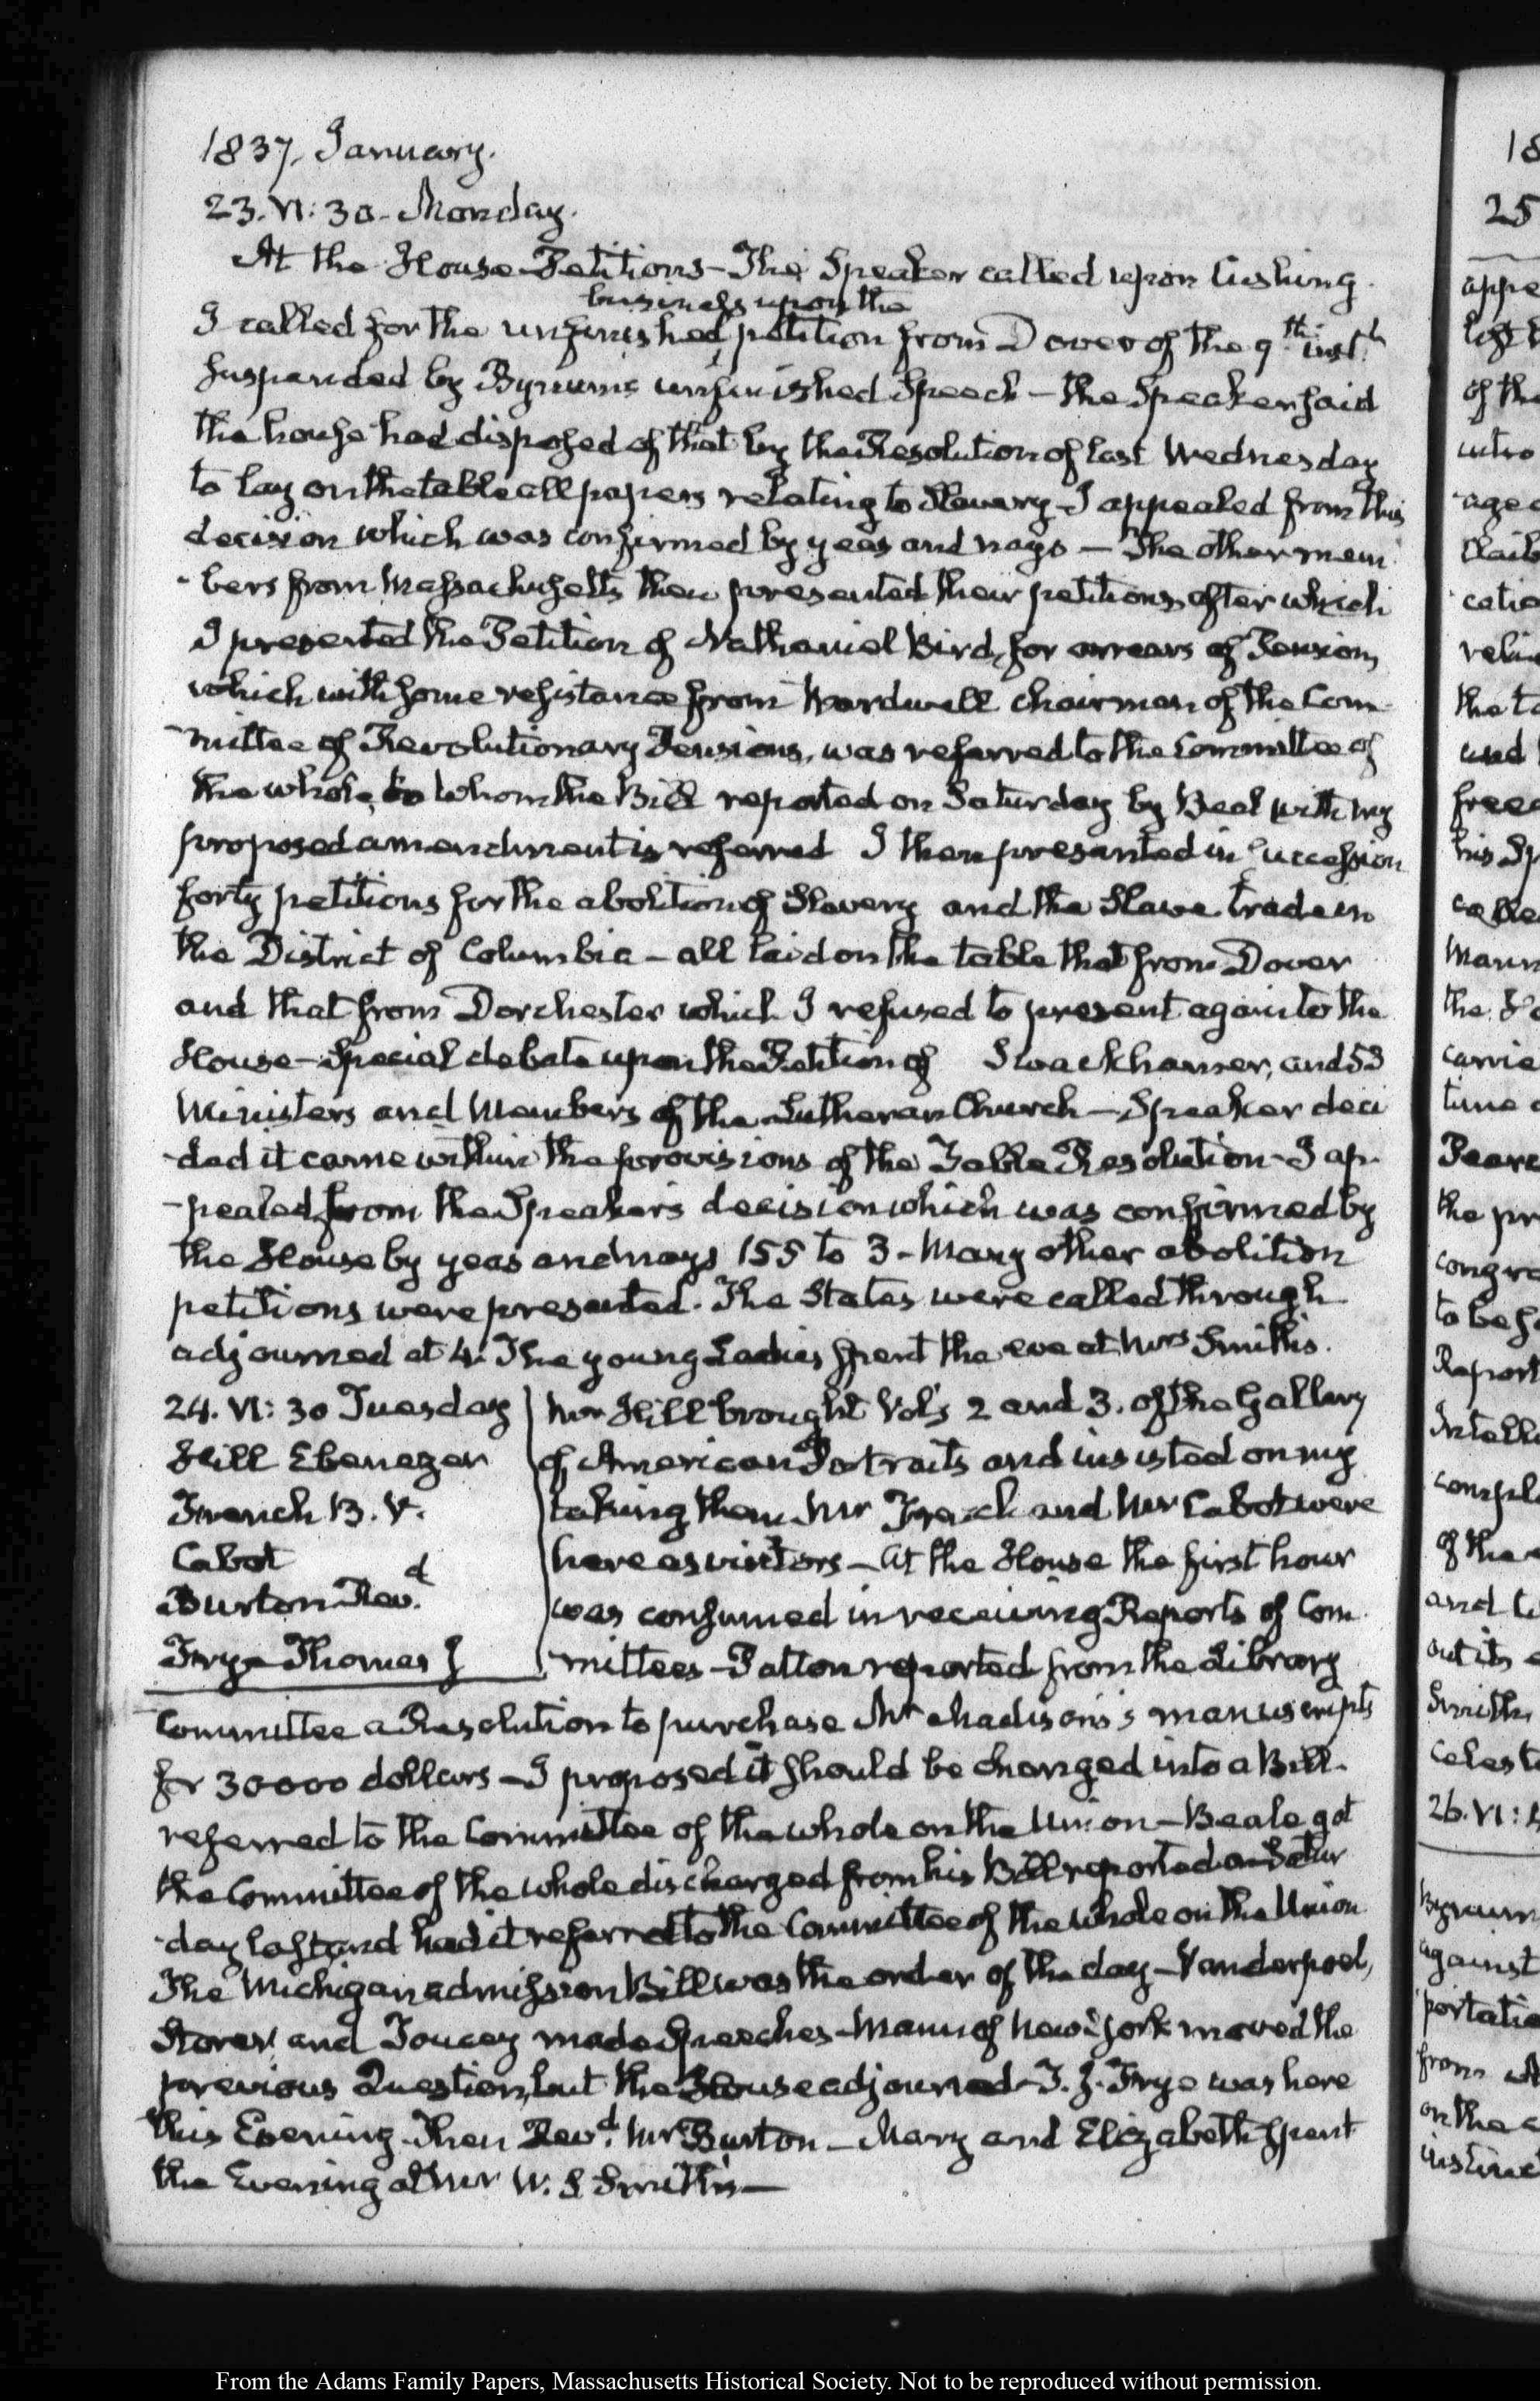 1837. January.
23. VI: 30. Monday.
At the House Petitions – The Speaker called upon Cushing.
business upon the
I called for the unfinished petition from Dover of the 9th inst.
suspended by Bynum's unfinished Speech – the Speaker said
the house had disposed of that by the Resolution of last Wednesday
to lay on the table all papers relating to Slavery – I appealed from this
decision which was confirmed by yeas and nays – The other mem
-bers from Massachusetts then presented their petitions, after which
I presented the Petition of Nathaniel Bird, for arrears of Pension,
which with some resistance from Wardwell chairman of the Com-
-mittee of Revolutionary Pensions, was referred to the Committee of
the whole, to whom the Bill reported on Saturday by Beal with my
proposed amendment is referred I then presented in succession
forty petitions for the abolition of Slavery and the Slave trade in
the District of Columbia – all laid on the table that from Dover
and that from Dorchester which I refused to present again to the
House – Special debate upon the Petition of Swackhamer, and 53
Ministers and Members of the Lutheran Church – Speaker deci
-ded it came within the provisions of the Table Resolution – I ap-
-pealed from the Speaker's decision which was confirmed by
the House by yeas and nays 155 to 3 – Many other abolition
petitions were presented. The States were called through
adjourned at 4. The young Ladies spent the eve at Mrs Smith's.
24. VI: 30 Tuesday
Hill Ebenezer
French B. V.
Cabot
Burton Revd.
Frye Thomas J
Mr Hill brought Vol's 2 and 3. of the Gallery
of American Portraits and insisted on my
taking them Mr French and Mr Cabot were
here as visitors – At the House the first hour
was consumed in receiving Reports of Com.
-mittees – Patton reported from the Library
Committee a Resolution to purchase Mr Madison's manuscripts
for 30000 dollars – I proposed it should be changed into a Bill.
referred to the Committee of the whole on the Union – Beale got
the Committee of the whole discharged from his Bill reported on Satur
-day last, and had it referred to the Committee of the whole on the Union
The Michigan admission Bill was the order of the day – Vanderpoel,
Storer and Toucey made Speeches – Mann of New York moved the
previous Question, but the House adjourned – T. J. Frye was here
this Evening. Then Revd. Mr Burton – Mary and Elizabeth spent
the Evening at Mr W. S Smith's –
18
25
appe
of the
intro
aged
catio
the to
and
free
his Sp
Mann
time
Pearc
the pr
congre
Report
Intelli
compl
of the
Smith
Celest
26. VI:
Bynum
against
portatio
from
on the
From the Adams Family Papers, Massachusetts Historical Society. Not to be reproduced without permission.